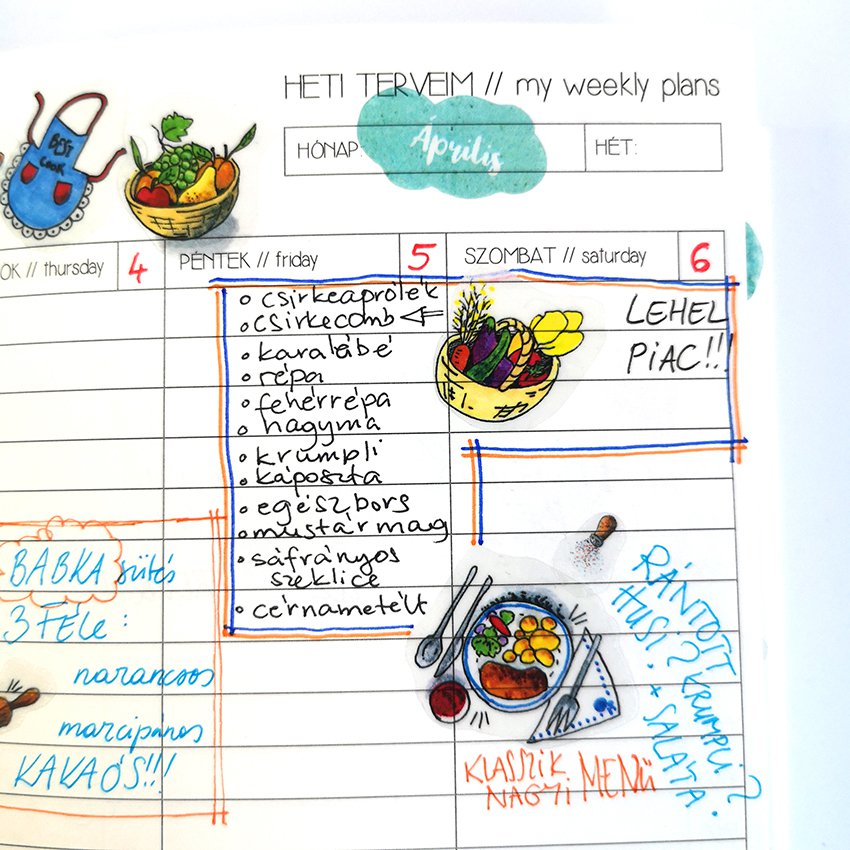 HETI TERVEIM // my weekly plans
HÓNAP: Április HÉT:
BEST
COOK
OK // thursday 4
PÉNTEK // friday 5
SZOMBAT // saturday 6
csirkeaprólék
csirkecomb
karalábé
répa
fehérrépa
hagyma
krumpli
káposzta
egész bors
mustármag
sáfrányos
szeklice
cérnametélt
LEHEL
PIAC!!!
BABKA sütés
3 FÉLE:
narancsos
marcipános
KAKAÓS!!!
RÁNTOTT
HUSI? KRUMPLI?
+ SALÁTA.
KLASSZIK
NAGYI MENÜ